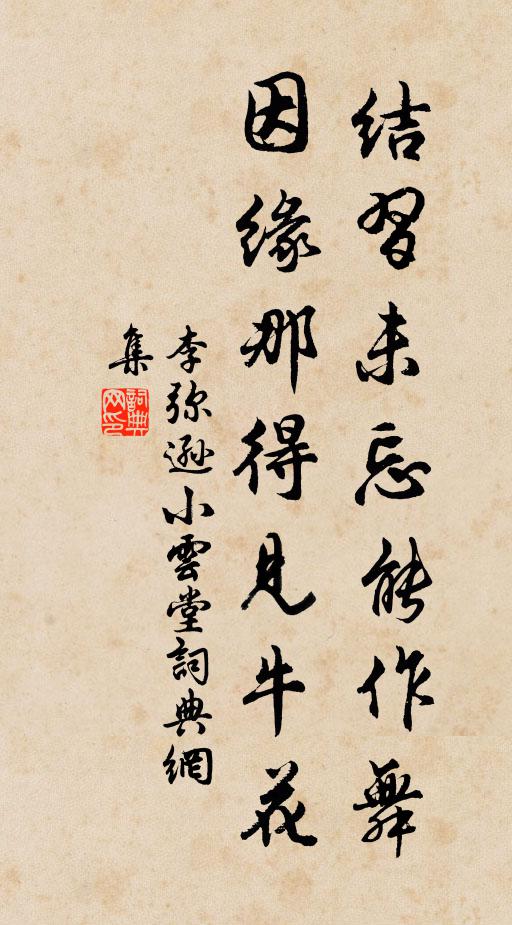 结习未忘能作舞
因缘那得见牛花
李弥逊小雲堂詞典網
集
詞典
网印